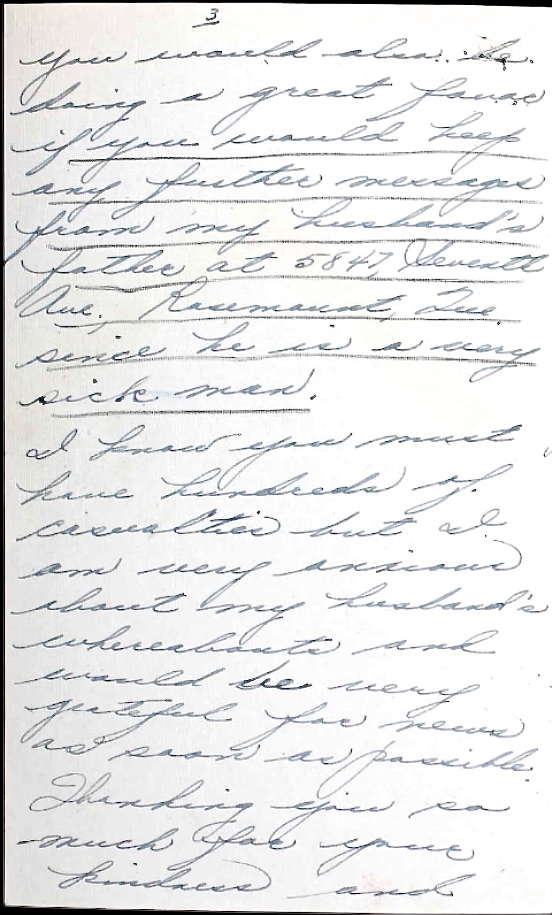 3
you would also be
doing a great favor
if you would keep
any further messages
from my husband's
father at 5847, Seventh
Ave. Rosemount, Que.
since he is a very
sick man.
I know you must
have hundreds of
casualties but I
am very anxious
about my husband's
whereabouts and
would be very
grateful for news
as soon as possible.
Thanking you so
much for your
kindness and